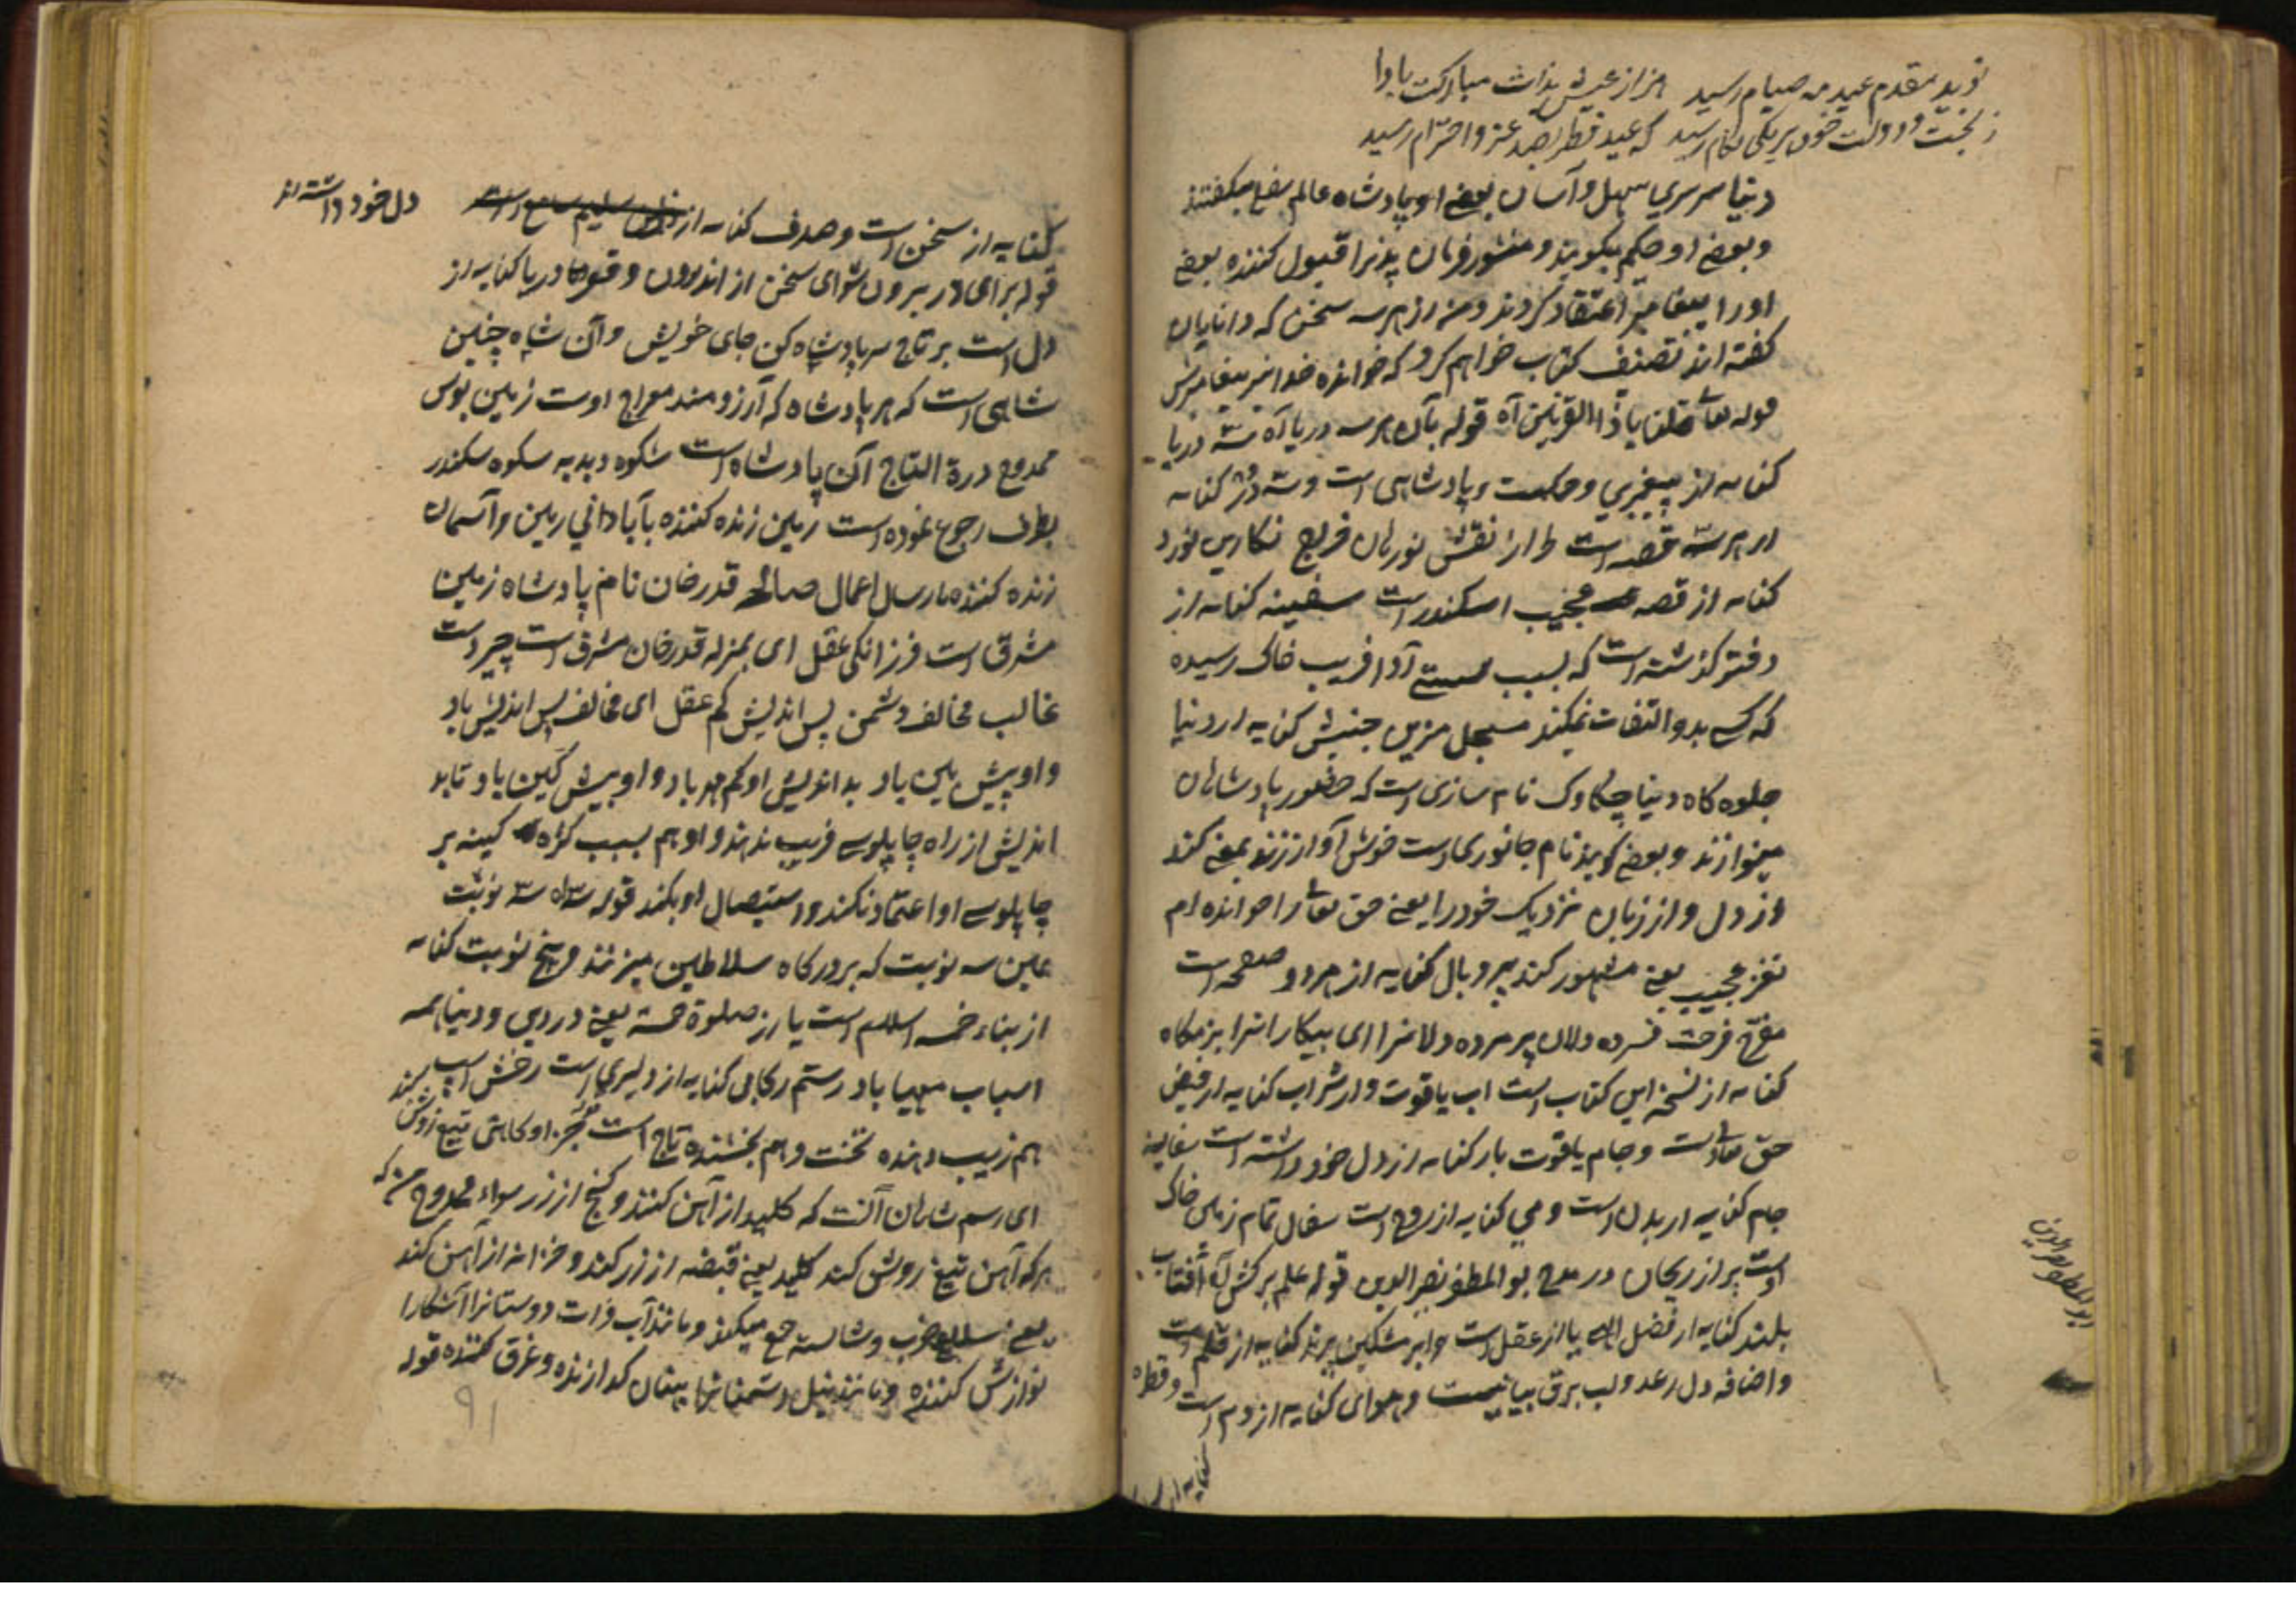 نوید مقدم عید مه صیام رسید هزار عیش بذات مبارکت بادا
ز بخت و دولت خود بریکی بکام رسید که عید فطر بصد عز و احترام رسید
دنیا سرسری سهل و آسان بعضی او پادشاه عالم یعنی میکفتند
و بعضی او حکیم میکویند و منشور فرمان پذیرا قبول کننده بعضی
او را پیغامبر اعتقاد کردند و من از هر سه سخن که دانایان
کفته اند تصنیف کتاب خواهم کرد که خوانده خدا نیز پیغامبرش
قوله تعالی قلنا یا ذا القرنین آه قوله بآن هر سه دریا آه سه دریا
کنایه از پیغمبری و حکمت و پادشاهی است و سه در کنایه
از هر سه قصه است طراز نقش نورهان فریج نکارین نورد
کنایه از قصه عجیب اسکندر است سفینه کنایه از
دفتر کذشته است که بسبب آدا فریب خاک رسیده
که کسی بدو التفات نمیکند مسجل مزین جنبش کنایه از دنیا
جلوه کاه دنیا چکاوک نام سازی است که حضور پادشاهان
مینوازند و بعضی کویند نام جانوری است خوش آواز زند یعنی کند
از دل و از زبان نزدیک خود را یعنی حق تعالی را خوانده ام
نغز عجیب یعنی مشهور کند پر و بال کنایه از هر دو صفحه است
مفرح فرحت فسرده دلان پژمرده دلانرا ای بیکارانرا بزمکاه
کنایه از نسخه این کتاب است اب یاقوت وار شراب کنایه از فیض
حق تعالی است و جام یاقوت بار کنایه از دل خود داشته است سفالینه
جام کنایه از بدن است و می کنایه از روح است سفال تمام زمین خاک
است پر از ریحان در مدح بو المظفر نصر الدین قوله علم برکش آه آفتاب
بلند کنایه از فضل الهی یا از عقل است و ابر مشکین پرند کنایه از قلم است
و اضافه دل رعد و لب برق بیانیست و هوای کنایه از دم است و قطره
کنایه از
ابو المظفر نصر الدین
کنایه از سخن است و صدف کنایه از دل خود داشته اند
قوله برای در برون شوای سخن از اندرون و قعر دریا کنایه از
دل است بر تاج سر پادشاه کن جای خویش و آن شاه چنین
شاهی است که هر پادشاه که آرزومند معراج اوست زمین بوس
ممدوح درة التاج آن پادشاه است شکوه دبدبه شکوه سکندر
بطرف رجوع نموده است زمین زنده کننده بآبادانی زمین و آسمان
زنده کننده بارسال اعمال صالحه قدرخان نام پادشاه زمین
مشرق است فرزانکی عقل ای بمنزله قدرخان مشرق است چیر دست
غالب مخالف دشمن پس اندیش کم عقل ای مخالف پس اندیش باد
و او پیش بین باد بد اندیش او کم مهر باد و او بیش کین باد تا بد
اندیش از راه چاپلوسی فریب ندهند و او هم بسبب کینه بر
چاپلوسی او اعتماد نکند و استیصال او بکند قوله سه نوبت
عین سه نوبت که بر درکاه سلاطین میزنند و پنج نوبت کنایه
از بناء خمسه اسلام است یا از صلوة خمسه یعنی در دین و دنیا همه
اسباب مهیا باد رستم رکابی کنایه از دلیری است رخش اسپ
هم زیب دهنده تخت و هم بخشنده تاج است
ای رسم شاهان آنست که کلید از آهن کنند و کنج از زر سواء ممدوح من که
هر که آهن تیغ زرویش کند کلید یعنی قبضه از زر کند و خزانه از آهن کند
یعنی سلاح خوب و شایسته جمع میکند و مانند آب فرات دوستانرا آشکارا
نوازش کننده و مانند نیل دشمنانرا پنهان کدازنده و غرق کننده قوله
۹۱